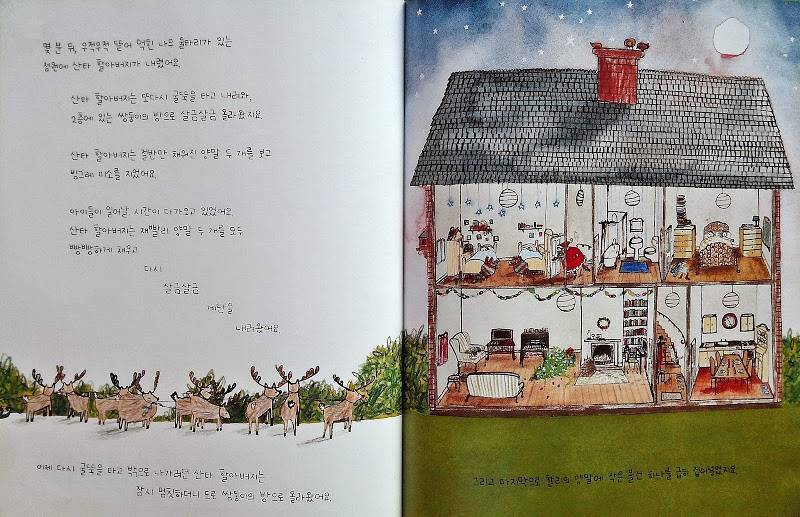 몇 분 뒤, 우적우적 뜯어 먹힌 나무 울타리가 있는
정원에 산타 할아버지가 내렸어요.
산타 할아버지는 또다시 굴뚝을 타고 내려와,
2층에 있는 쌍둥이의 방으로 살금살금 올라왔지요.
산타 할아버지는 절반만 채워진 양말 두 개를 보고
빙그레 미소를 지었어요.
아이들이 일어날 시간이 다가오고 있었어요.
산타 할아버지는 재빨리 양말 두 개를 모두
빵빵하게 채우고
다시
살금살금
계단을
내려왔어요.
이제 다시 굴뚝을 타고 밖으로 나가려던 산타 할아버지는
잠시 멈칫하더니 도로 쌍둥이의 방으로 올라왔어요.
그리고 마지막으로 할리의 양말에 작은 물건 하나를 급히 집어넣었지요.